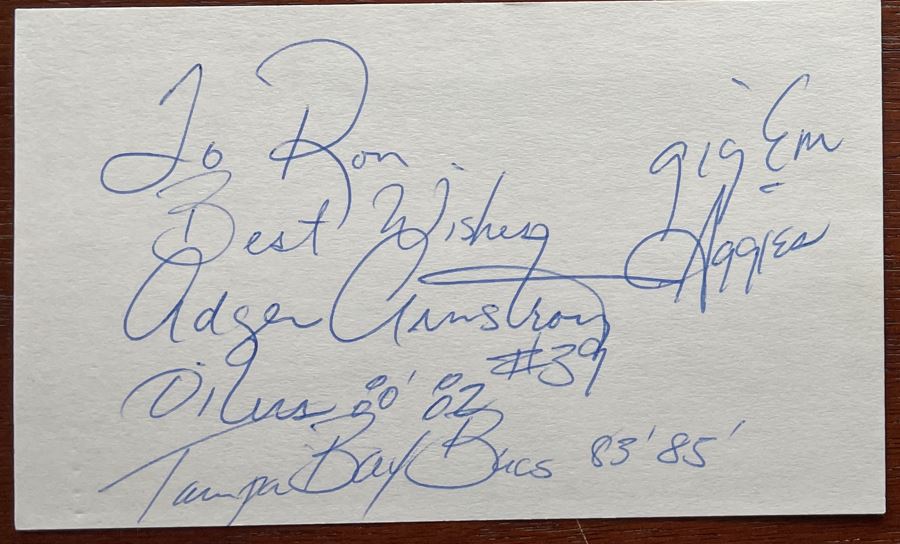 To Ron
Best Wishes
gig Em
Aggies
Adger Armstrong
#39
Oilers 80' 82
Tampa Bay Bucs 83' 85'